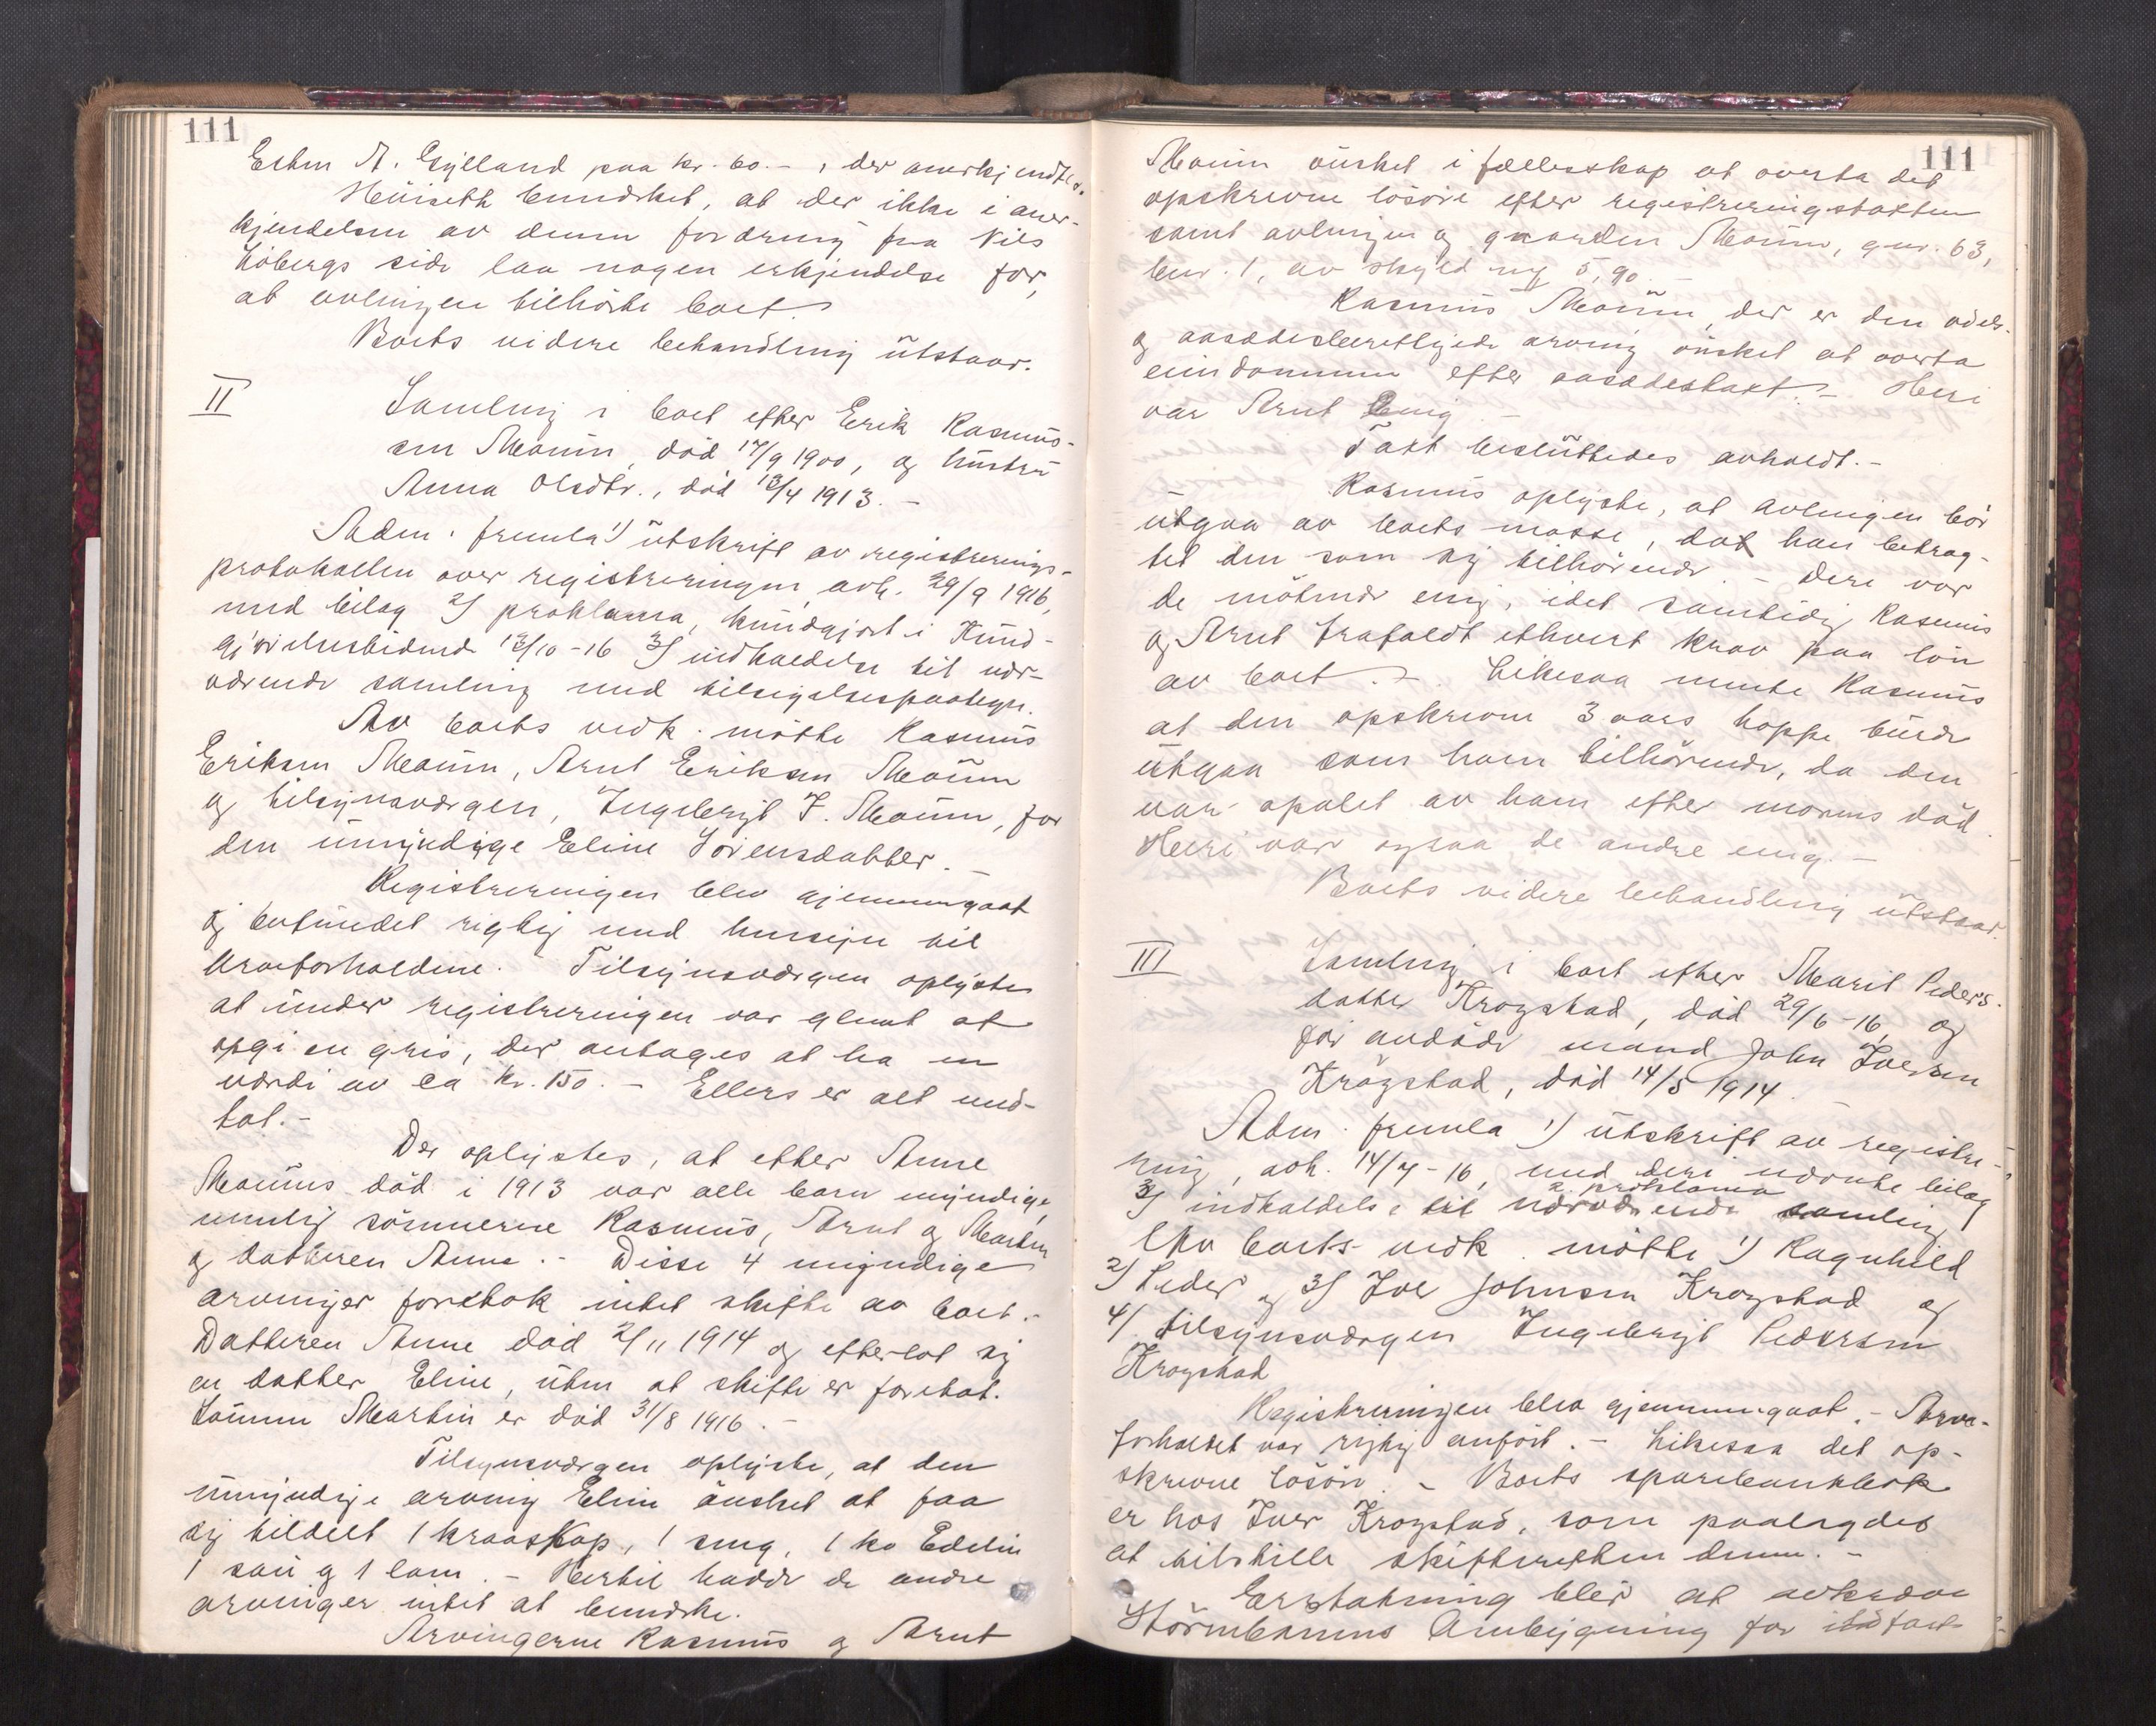 111
Esten A. Gylland paa kr. 60.-, der anerkjendtes.
Heuiseth bemerket, at der ikke i aner-
kjendelsen av denne fordring fra Nils
Löbergs side laa nogen erkjendelse for,
at avlingen tilhörte boet.
Boets videre behandling utstaar.
II
Samling i boet efter Erik Rasmus-
sen Moum, död 17/9 1900, og hustru
Anna Olsdtr., död 13/4 1913.-
Adm. fremla 1) utskrift av registrerings-
protokollen over registreringen, avh. 29/9 1916,
med bilag 2) proklama, kundgjort i Kund-
gjörelsestidende 13/10-16 3) indkaldelse til nær-
værende samling med tilsigelsespaategn.
Av boets vedk. mötte Rasmus
Eriksen Moum, Arnt Eriksen Moum
og tilsynsværgen, Ingebrigt J. Moum, for
den umyndige Eline Sörensdatter.-
Registreringen blev gjennemgaat
og befundet rigtig med hensyn til
arveforholdene. Tilsynsværgen oplyste
at under registreringen var glemt at
opgi en gris, der antages at ha en
værdi av ca kr. 150.- Ellers er alt med-
tat.-
Der oplystes, at efter Anne
Moums död i 1913 var alle barn myndige,
nemlig sönnerne Rasmus, Arnt og Martin
og datteren Anne.- Disse 4 myndige
arvinger foretok intet skifte av boet.-
Datteren Anne död 2/11 1914 og efterlot sig
en datter Eline, uten at skifte er foretat.
Sönnen Martin er död 31/8 1916.-
Tilsynsværgen oplyste, at den
umyndige arving Eline önsket at faa
sig tildelt 1 kraaskap, 1 seng, 1 ko Edelin
1 sau og 1 lam.- Hertil hadde de andre
arvinger intet at bemerke.
Arvingerne Rasmus og Arnt
111
Moum önsket i fællesskap at overta det
opskrevne lösöre efter registreringstakten
samt avlingen og gaarden Moum, gnr. 63,
bnr. 1, av skyld mk 5,90.-
Rasmus Moum, der er den odels-
og aasædesberettigede arving önsket at overta
eiendommen efter aasædestakst.- Heri
var Arnt enig.-
Takt besluttedes avholdt.-
Rasmus oplyste, at avlingen bör
utgaa av boets masse, da han betrag-
tet den som sig tilhörende.- Deri var
de mötende enig, idet samtidig Rasmus
og Arnt frafaldt ethvert krav paa lön
av boet.- Likesaa mente Rasmus
at den opskrevne 3 aars hoppe burde
utgaa som ham tilhörende, da den
var opalet av ham efter morens död.
Heri var ogsaa de andre enig.-
Boets videre behandling utstaar.
III
Samling i boet efter Marit Peders-
datter Krogstad, död 29/6-16, og
för avdöde mand John Iversen
Krogstad, död 14/5 1914.-
Adm. fremla 1) utskrift av registre-
ring, avh. 14/7-16, med deri nævnte bilag
2 proklama
3) indkaldelse til nærværende samling
Av boets vedk. mötte 1) Ragnhild
2) Peder og 3) Iver Johnsen Krogstad og
4) tilsynsværgen Ingebrigt Pedersen
Krogstad
Registreringen blev gjennemgaat.- Arve-
forholdet var rigtig anfört.- Likesaa det op-
skrevne lösöre.- Boets sparebankbok
er hos Iver Krogstad, som paalagdes
at tilstille skifteretten denne.-
Erstatning blev at avkræve
Störenbanens Ombygning for